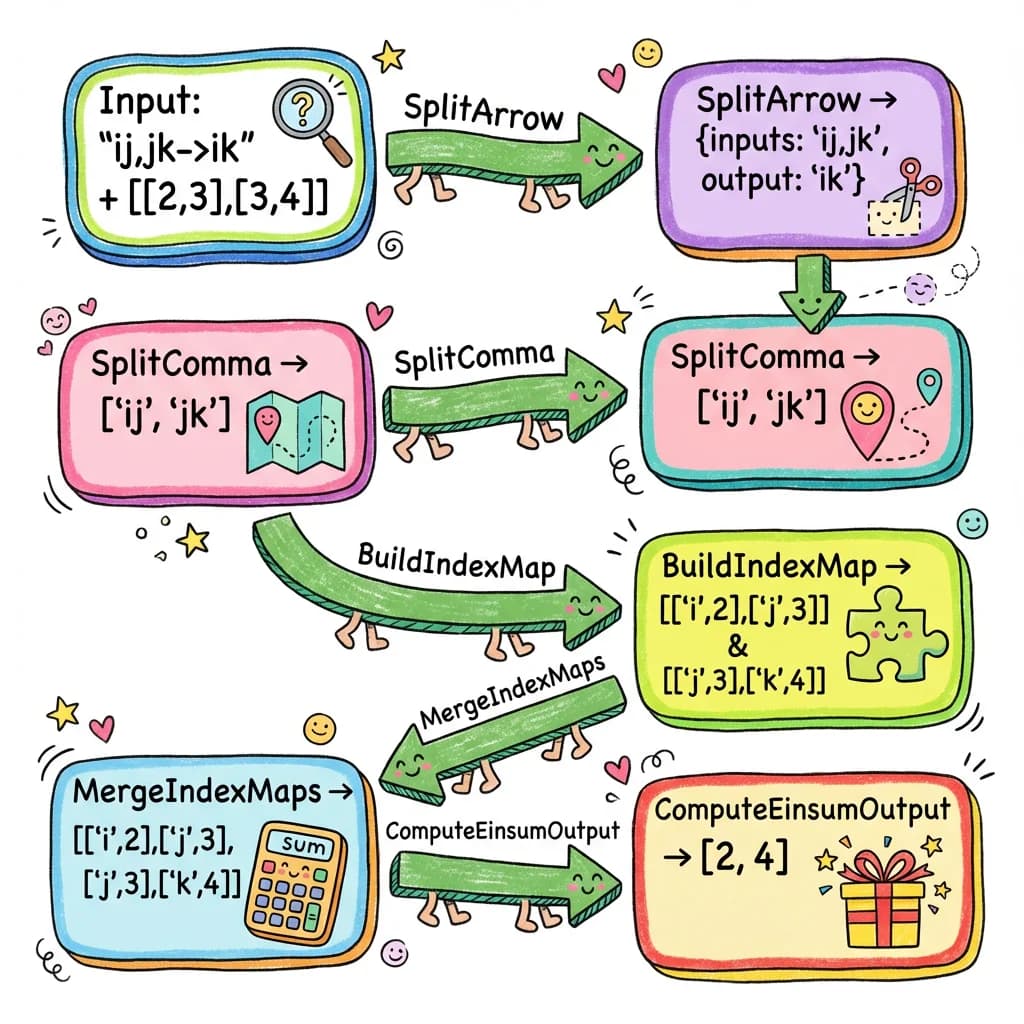 Input:
“ij,jk->ik”
+ [[2,3],[3,4]]
SplitArrow
SplitArrow →
{inputs: ‘ij,jk’,
output: ‘ik’}
SplitComma →
[‘ij’, ‘jk’]
SplitComma
SplitComma →
[‘ij’, ‘jk’]
BuildIndexMap
BuildIndexMap →
[[‘i’,2],[‘j’,3]]
&
[[‘j’,3],[‘k’,4]]
MergeIndexMaps
MergeIndexMaps →
[[‘i’,2],[‘j’,3],
[‘j’,3],[‘k’,4]]
sum
ComputeEinsumOutput
ComputeEinsumOutput
→ [2, 4]